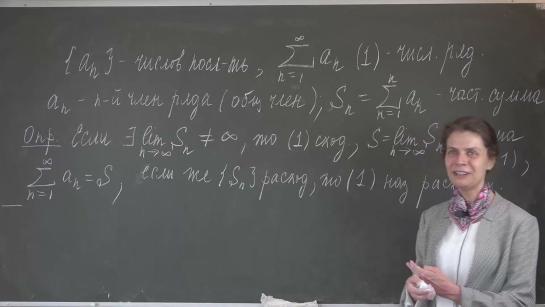 {aₙ} - числов посл-ть, ∑_{n=1}^{∞} aₙ (1) - числ. ряд.
aₙ - n-й член ряда (общ член), Sₙ = ∑_{n=1}^{n} aₙ - част. сумма
Опр Если ∃ lim_{n→∞} Sₙ ≠ ∞, то (1) сход, S = lim_{n→∞} Sₙ
∑_{n=1}^{∞} aₙ = S, если же {Sₙ} расход, то (1) наз (1),